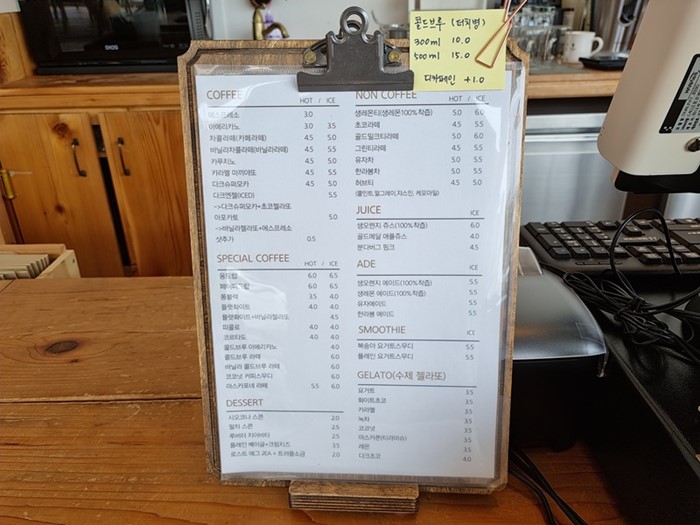 콜드브루 (더치병)
300ml 10.0
500ml 15.0
디카페인 +1.0
COFFEE HOT / ICE
에스프레소 3.0
아메리카노 3.0 3.5
차플라떼(카페라떼) 4.5 5.0
바닐라차플라떼(바닐라라떼) 4.5 5.5
카푸치노 4.5 5.0
카라멜 마끼아또 4.5 5.5
다크슈퍼모카 4.5 5.0
다크엔젤(ICED) 5.5
->다크슈퍼모카+초코젤라또
아포카토 5.0
->바닐라젤라또+에스프레소
샷추가 0.5
SPECIAL COFFEE HOT / ICE
6.0 6.5
6.0 6.5
롱블랙 3.5 4.0
플랫화이트 4.0 4.0
플랫화이트+바닐라젤라또 4.5
피콜로 4.0 4.0
코르타도 4.0 4.0
콜드브루 아메리카노 4.0
콜드브루 라떼 6.0
바닐라 콜드브루 라떼 6.0
코코넛 커피스무디 6.0
마스카포네 라떼 5.5 6.0
DESSERT
시오코나 스콘 2.0
말차 스콘 2.5
루버터 치아바타 2.5
플레인 베이글+크림치즈 3.5
로스트 에그 2EA + 트러플소금 2.0
NON COFFEE HOT / ICE
생레몬티(생레몬100%착즙) 5.0 6.0
초코라떼 4.5 5.5
골드밀크티라떼 5.0 6.0
그린티라떼 4.5 5.5
유자차 5.0 5.5
한라봉차 5.0 5.5
허브티 4.5 5.0
(쿨민트,얼그레이,쟈스민, 케모마일)
JUICE ICE
생오렌지 쥬스(100%착즙) 6.0
골드메달 애플쥬스 4.0
분다버그 핑크 4.5
ADE ICE
생오렌지 에이드(100%착즙) 5.5
생레몬 에이드(100%착즙) 5.5
유자에이드 5.5
한라봉 에이드 5.5
SMOOTHIE ICE
복숭아 요거트스무디 5.5
플레인 요거트스무디 5.5
GELATO(수제 젤라또)
요거트 3.5
화이트초코 3.5
카라멜 3.5
녹차 3.5
코코넛 3.5
마스카폰(티라미슈) 3.5
레몬 3.5
다크초코 4.0